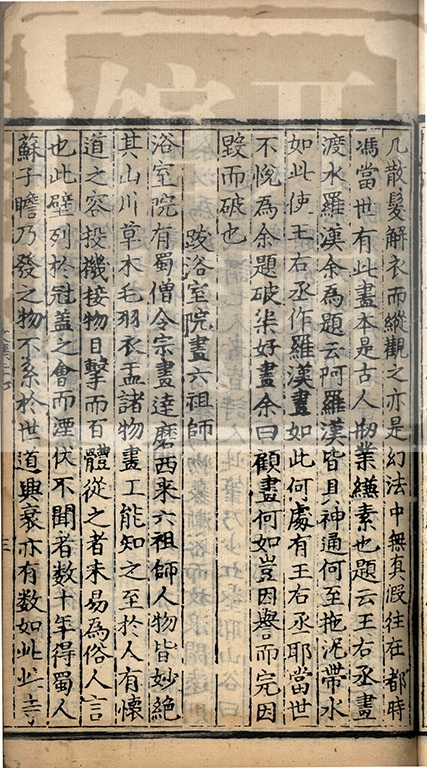 几散髮解衣而縱觀之亦是幻法中無真假住在都時
馮當世有此畫本是古人粉素也題云王右丞畫
渡水羅漢余為題云阿羅漢皆具神通何至拖泥帶水
如此使王右丞作羅漢畫如此何處有王右丞耶當世
不悅為余題破柒好畫余曰顧畫何如豈因譽而完因
毀而破也
跋浴室院畫六祖師
浴室院有蜀僧令宗畫達磨西来六祖師人物皆妙絶
其山川草木毛羽衣盂諸物畫工能知之至於人有懷
道之容投機接物目擊而百體從之者未易為俗人言
也此壁列於冠盖之會而湮伏不聞者數十年得蜀人
蘇子瞻乃發之物不系於世道興衰亦有数如此